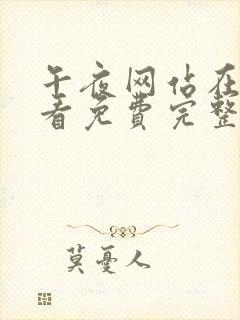 午夜网佔在
看免费完整
莫憂人